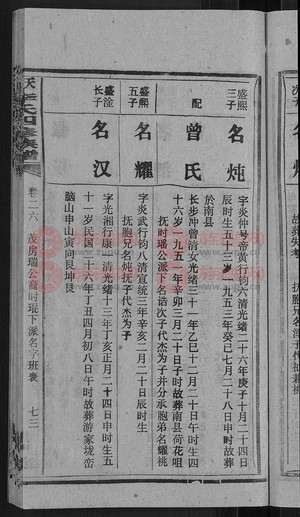 盛熙三子
名炖
字炎仲号帝黄行钧六清光绪二十六年庚子十月二十四日
辰时生五十三岁一九五三年癸巳七月二十八日申时故葬
於南县
配
曾氏
长步冲曾清女光绪三十一年乙巳十二月二十日午时生四
十六岁一九五一年辛卯三月二十日子时故葬南县荷花咀
抚时瑶公派下名诰次子代杰为子并分承胞弟名耀祧
盛熙四子
名耀
字炎武行钧八清宣统三年辛亥二月二十日辰时生
抚胞兄名炖抚子代杰为子
盛淦长子
名汉
字光湘行康一清光绪十三年丁亥正月二十四日申时生五
十一岁民国二十六年丁丑四月初八日午时故葬游家坡峦
脑山申山寅向艮坤艮
卷二六
茂房瑞公裔时琨下派名字班表
七三